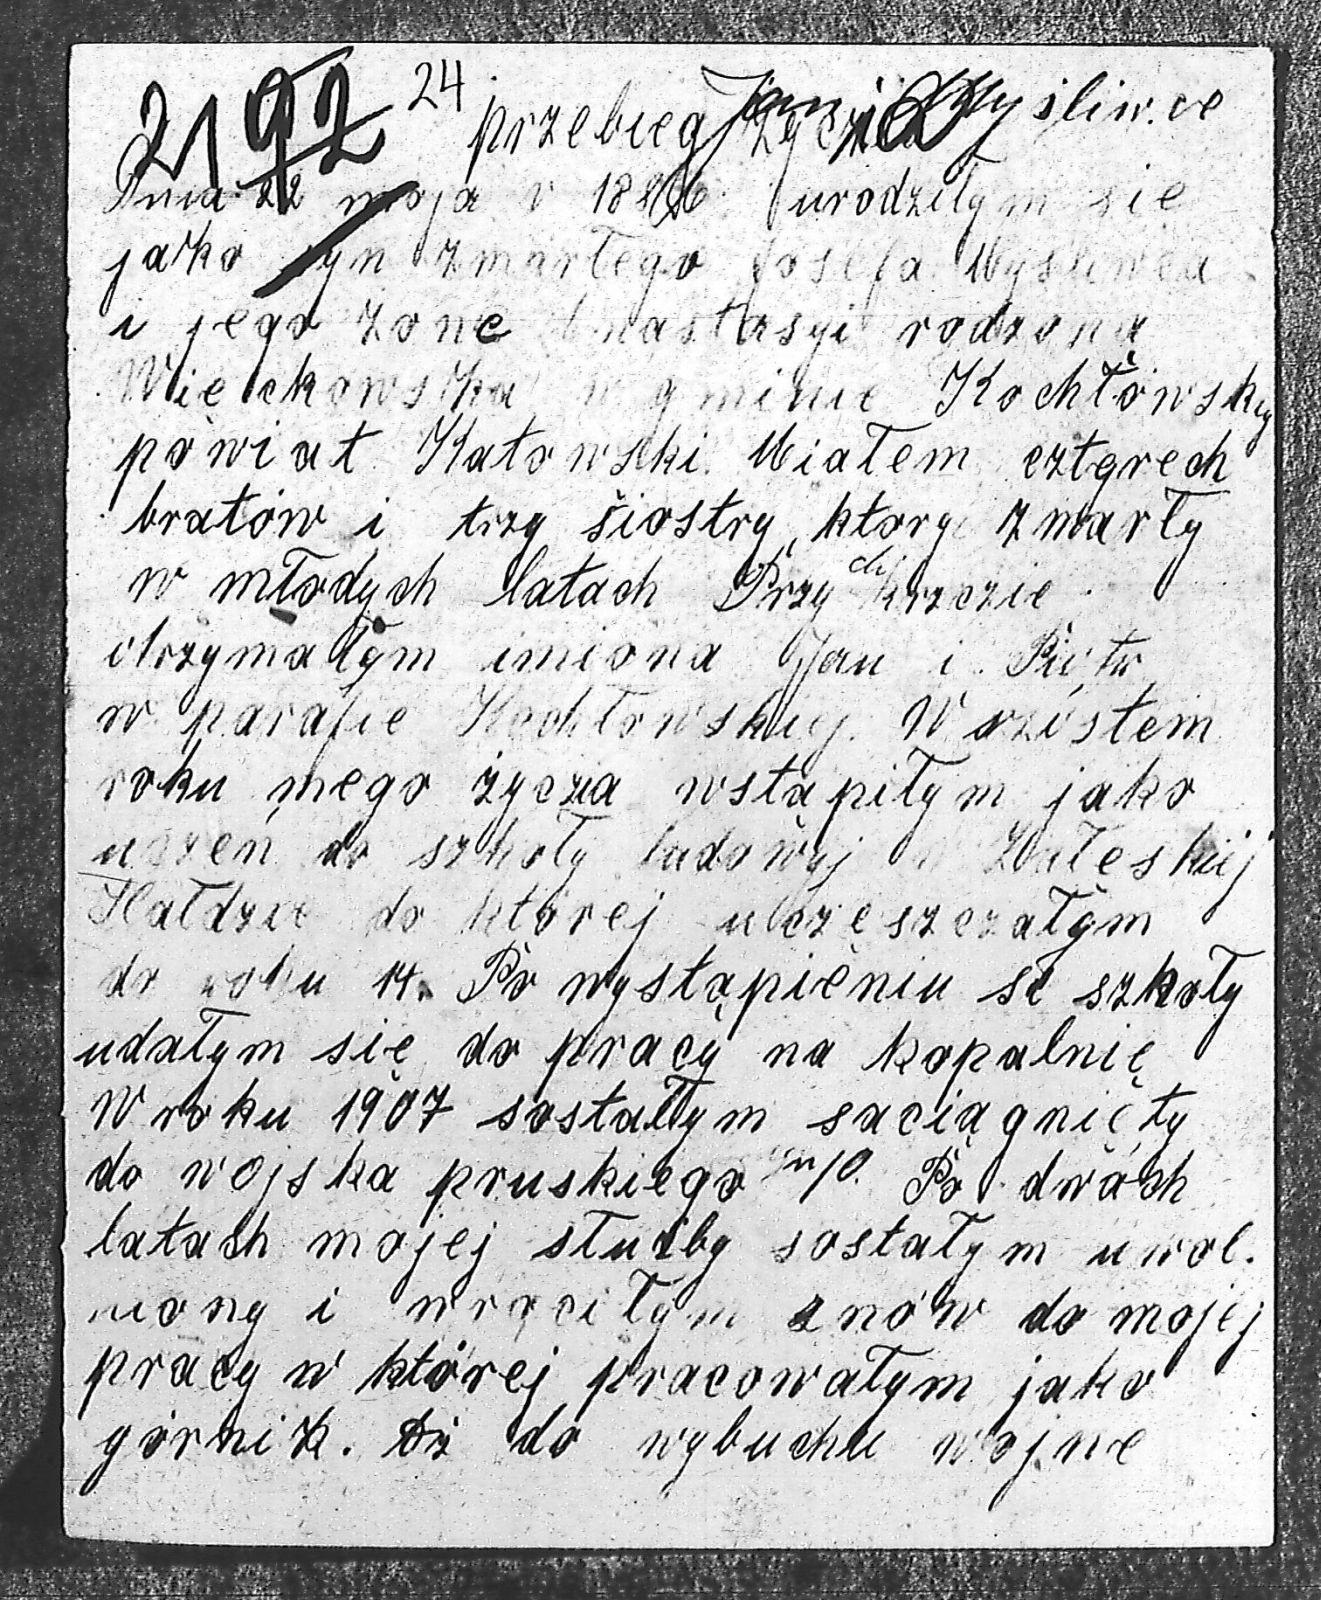 2192 24 przebieg życzia Jan Myśliw.ce
Dnia 22 maja v 1886 urodziłym sie
jako syn zmarłego Josefa Myśliwca
i jego zone Anastasyi rodzona
Więckowska w gminie Kochłówsky
powiat Katowski. Miałem czterech
bratów i trzy siostry, ktory zmarły
w młodych latach Przy chrzczie
otrzymałym imiona Jan i Piotr
w parafie Kochłowskiej. W szóstem
roku mego życzia wstąpiłym jako
uczeń do szkoły ludowej w Zaleskiej
Hałdzie do której uczęszczałym
do roku 14. Po wystąpieniu se szkoły
udałym się do pracy na kopalnię
W roku 1907 sostałym saciągnięty
do wojska pruskiego 10. Po dwóch
latach mojej służby sostałym uwol.
niony i wraciłym znów do mojej
pracy w której pracowałym jako
górnik. Aż do wybuchu wojne